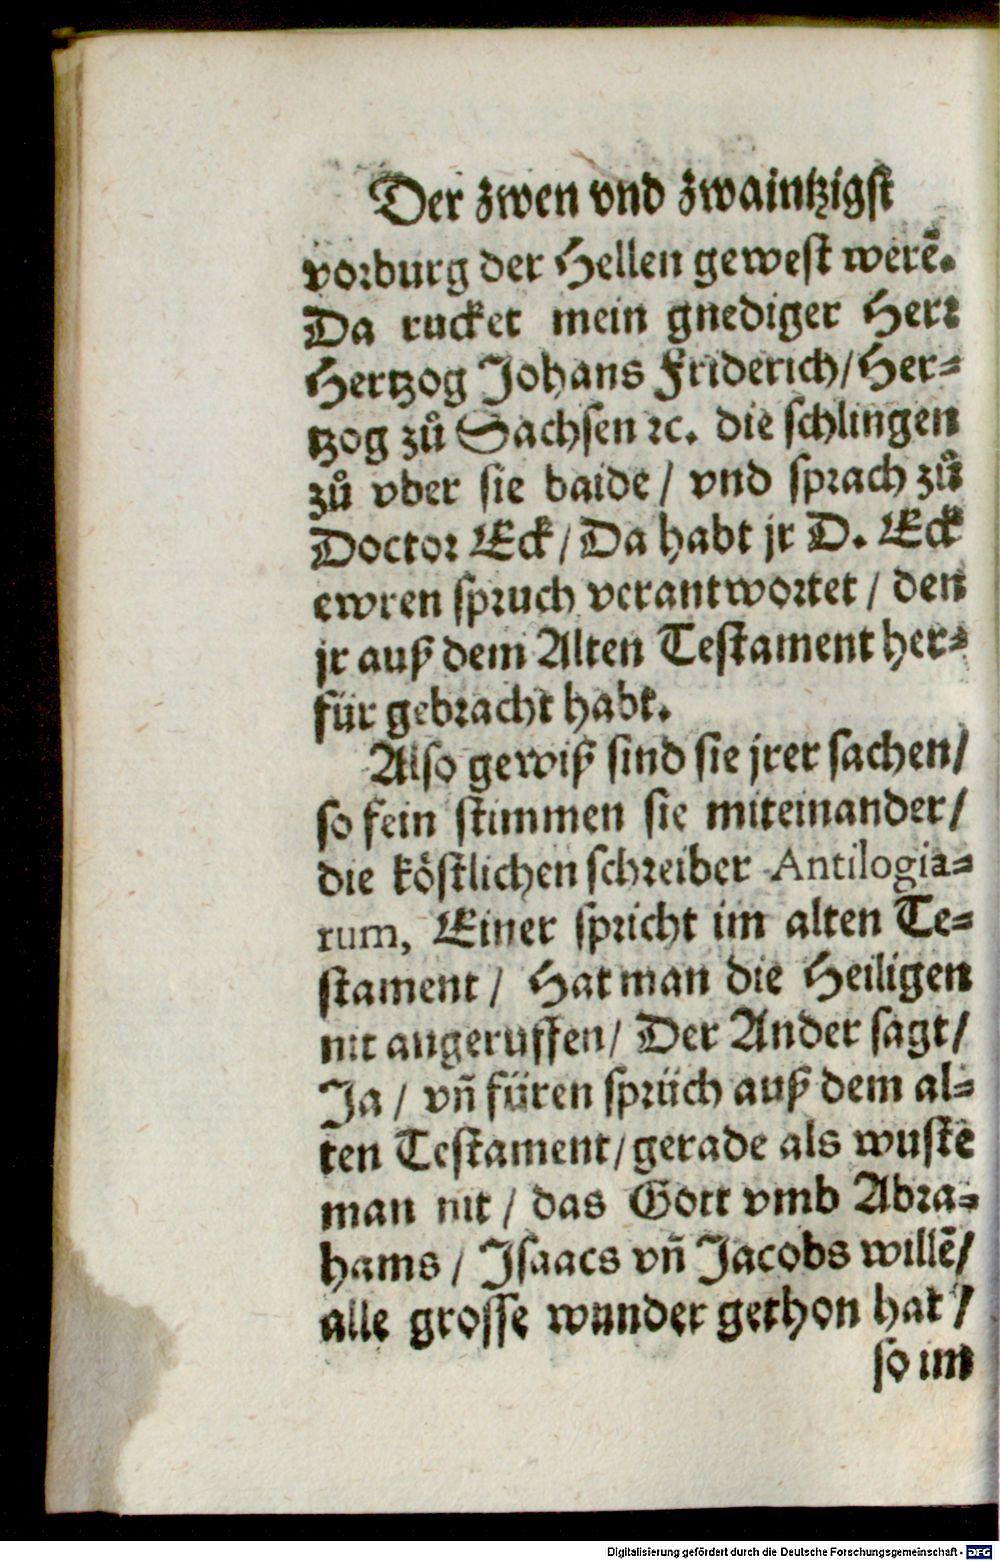 Der zwen vnd zwaintzigst
vorburg der Hellen gewest werē.
Da rucket mein gnediger Herr
Hertzog Johans Friderich/Her-
tzog zů Sachsen ꝛc. die schlingen
zů vber sie baide / vnd sprach zů
Doctor Eck/Da habt jr D. Eck
ewren spruch verantwortet / den
jr auß dem Alten Testament her-
für gebracht habt.
Also gewiß sind sie jrer sachen/
so fein stimmen sie miteinander/
die köstlichen schreiber Antilogia-
rum, Einer spricht im alten Te-
stament / Hat man die Heiligen
nit angeruffen/ Der Ander sagt/
Ja / vñ füren sprüch auß dem al-
ten Testament/gerade als wuste
man nit / das Gott vmb Abra-
hams / Jsaacs vñ Jacobs willē/
alle grosse wunder gethon hat /
so im
Digitalisierung gefördert durch die Deutsche Forschungsgemeinschaft - DFG